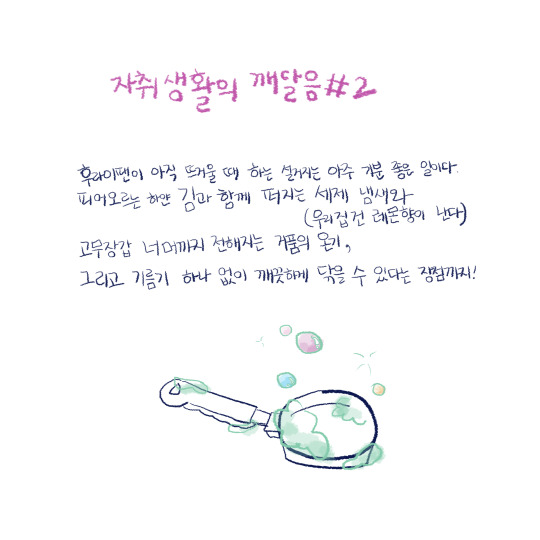 자취생활의 깨달음#2
후라이팬이 아직 뜨거울 때 하는 설거지는 아주 기분 좋은 일이다.
피어오르는 하얀 김과 함께 퍼지는 세제 냄새와
(우리집건 레몬향이 난다)
고무장갑 너머까지 전해지는 거품의 온기,
그리고 기름기 하나 없이 깨끗하게 닦을 수 있다는 장점까지!